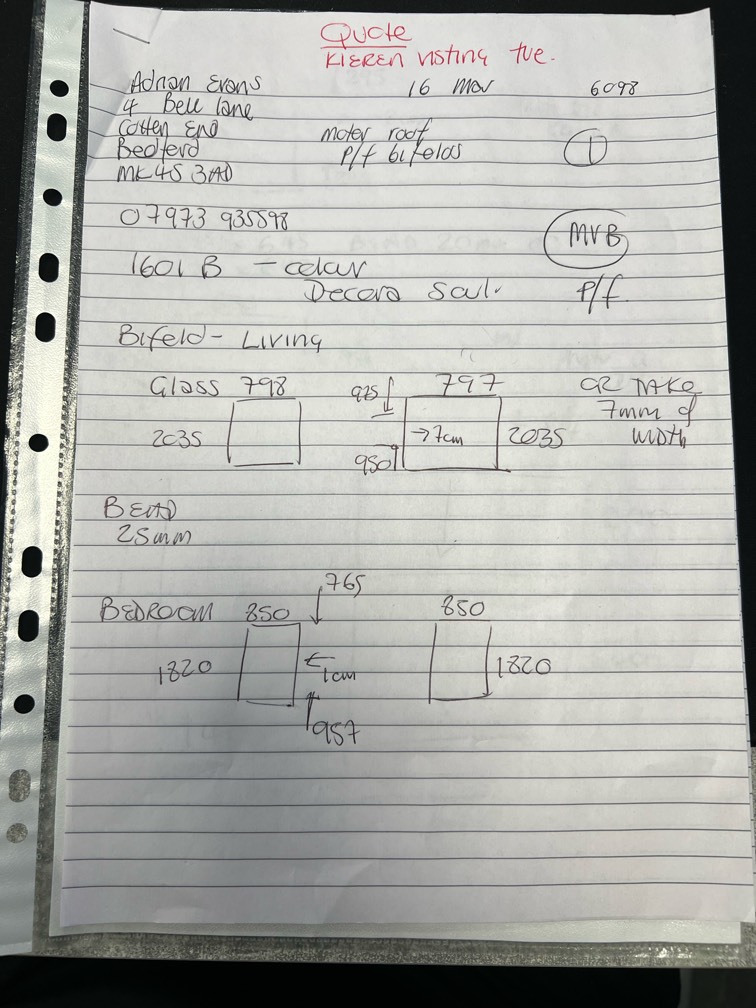 Quote
KIEREN visting tue.
Adrian Evans 16 Mar 6098
4 Bell lane
Cotten End
Bedford moter roof
MK45 3AD P/f bifolds 1
07973 935598
MVB
1601 B - cedar
Decora Soul. P/f.
Bifold - Living
Glass 798 925 797 OR TAKE
7mm of
2035 →7cm 2035 width
950
BEAD
25mm
765
BEDROOM 850 850
1820 ←1cm 1820
957